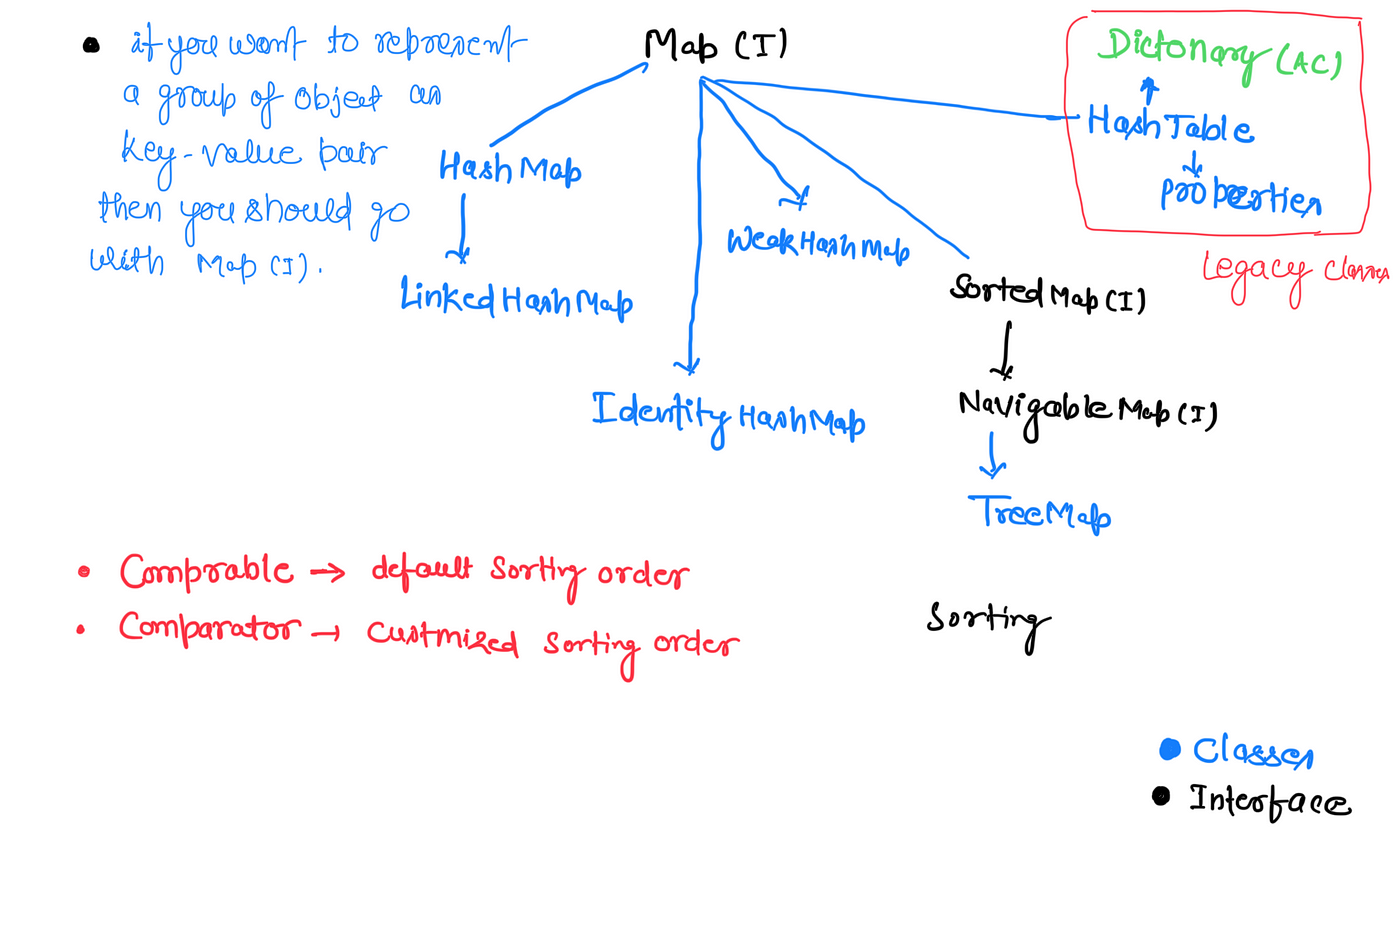 if you want to represent
a group of object as
key-value pair
then you should go
with Map (I).
Map (I)
HashMap
LinkedHashMap
IdentityHashMap
WeakHashMap
SortedMap (I)
NavigableMap (I)
TreeMap
Dictonary (AC)
HashTable
properties
Legacy Classes
Comprable → default Sorting order
Comparator → Custmized Sorting order
Sorting
Classes
Interface